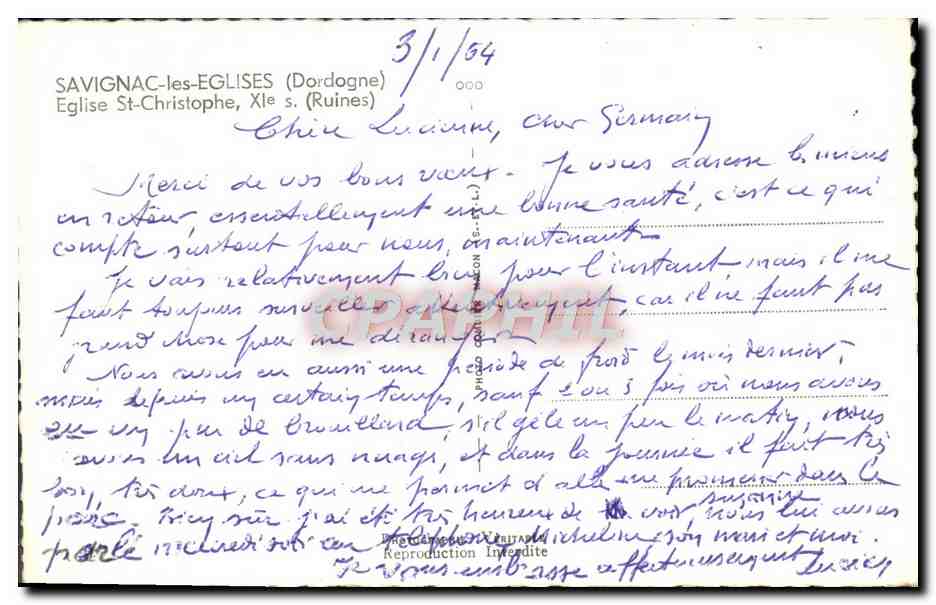 3/1/64
SAVIGNAC-les-EGLISES (Dordogne)
Eglise St-Christophe, XIe s. (Ruines)
Chère Lucienne, cher Germain
Merci de vos bons vœux. Je vous adresse les miens
en retour, essentiellement une bonne santé, c'est ce qui
compte surtout pour nous, maintenant.
Je vais relativement bien pour l'instant, mais il me
faut toujours surveiller car il ne faut pas
grand chose pour me
Nous avons eu aussi une période de froid le mois dernier,
mais depuis un certain temps, sauf 2 ou 3 fois où nous avons
eu un peu de brouillard, s'il gèle un peu le matin, nous
avons un ciel sans nuage, et dans la journée il fait très
bon, très doux, ce qui me permet d'aller me promener dans le
parc. Bien sûr j'ai été très heureux de voir Suzanne, nous lui avons
parlé mercredi soir au téléphone, Micheline, son mari et moi.
Je vous embrasse affectueusement
PHOTO COMBIER MACON (S.-ET-L.)
Photographie Véritable
Reproduction Interdite
CPAPHIL